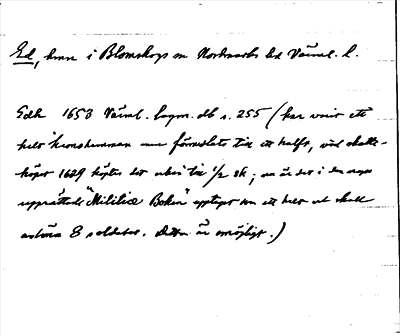 Ed, hmn i Blomskogs sn Nordmarks hd Värml. l.
Edh 1653 Värml. lagm. db s. 255 (har varit ett
helt kronohemman men förmedlats till ett halft, vid skatte-
köpet 1629 köptes det till 1/2 sk; nu är det i den nya
upprättade "Militiæ Boken" upptaget som ett helt ut skall
8 soldater. Detta är omöjligt.)